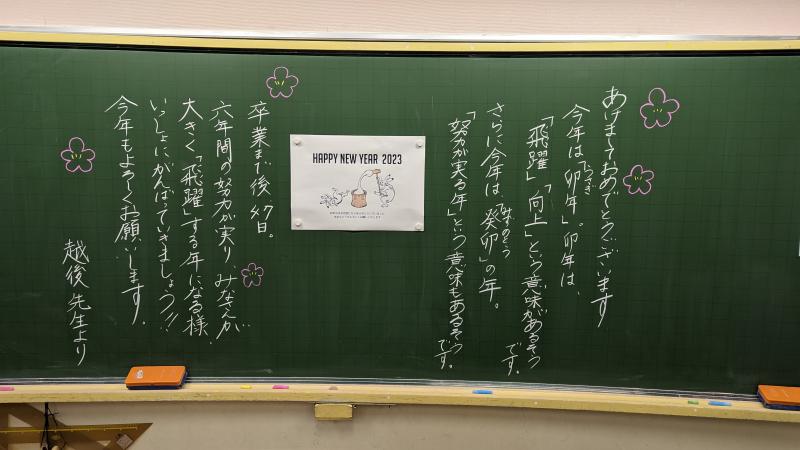 あけましておめでとうございます
今年は「卯年」。卯年は、
うさぎ
「飛躍」「向上」という意味があるそう
です。
さらに今年は、「癸卯」の年。
みずのとう
「努力が実る年」という意味もあるそう
です。
HAPPY NEW YEAR 2023
卒業まで後47日。
六年間の努力が実り、みなさんが
大きく「飛躍」する年になる様、
いっしょにがんばっていきましょう!!
今年もよろしくお願いします。
越後先生より